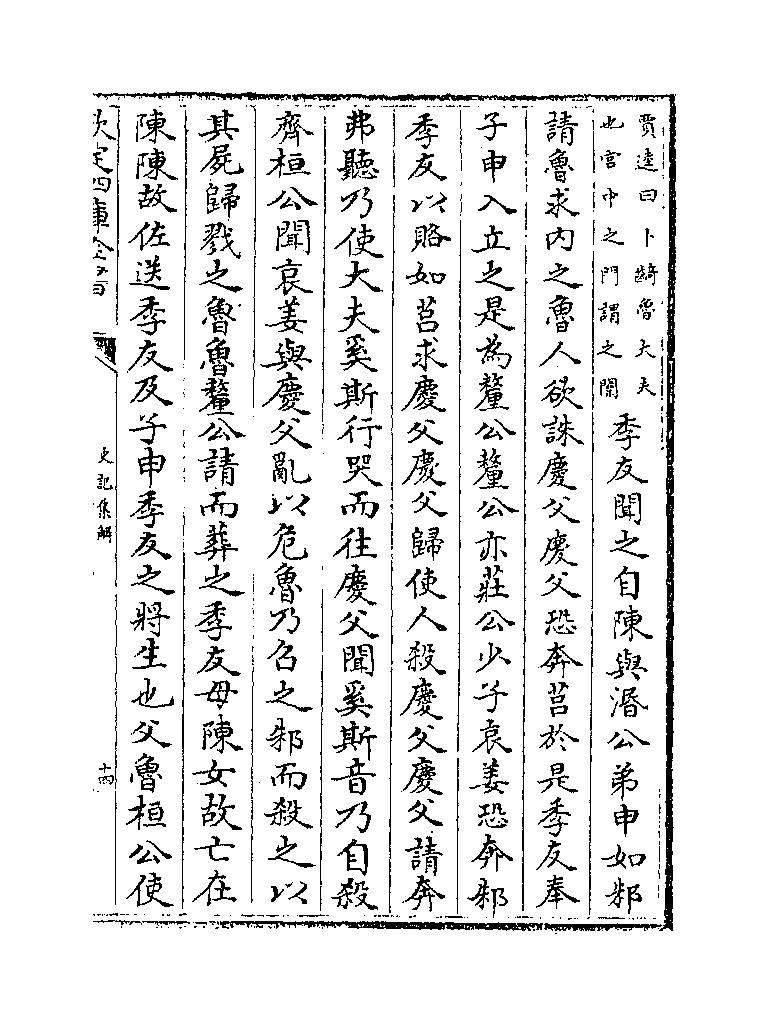 賈逵曰卜齮魯大夫
也宫中之門謂之闈
季友聞之自陳與湣公弟申如邾
請魯求内之魯人欲誅慶父慶父恐奔莒於是季友奉
子申入立之是為釐公釐公亦莊公少子哀姜恐奔邾
季友以賂如莒求慶父慶父歸使人殺慶父慶父請奔
弗聽乃使大夫奚斯行哭而往慶父聞奚斯音乃自殺
齊桓公聞哀姜與慶父亂以危魯乃召之邾而殺之以
其屍歸戮之魯魯釐公請而葬之季友母陳女故亡在
陳陳故佐送季友及子申季友之將生也父魯桓公使
欽定四庫全書
史記集解
十四